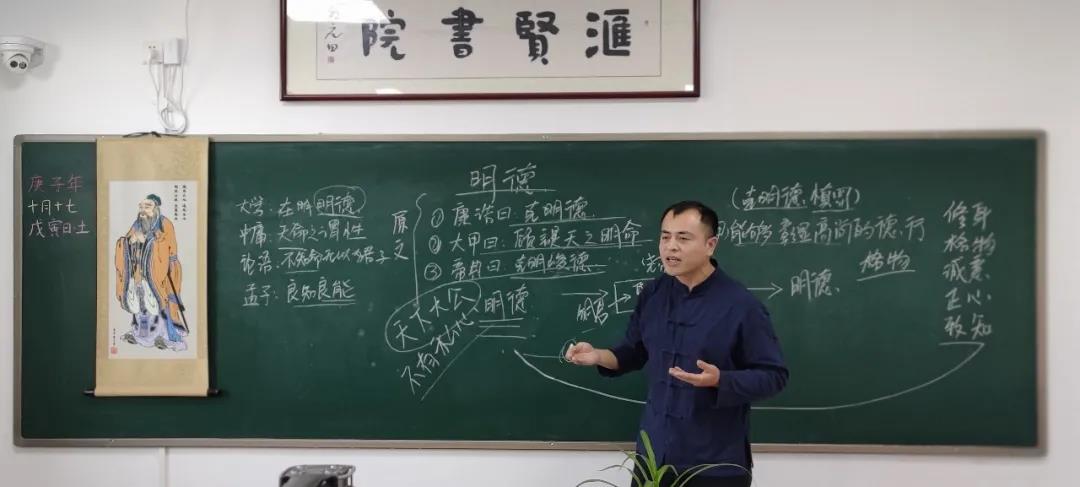 院書賢滙
庚子年
十月十七
戊寅日·土
明德
大学：在明明德
中庸：天命之谓性
论语：不知命无以为君子
孟子：良知良能
原文
①康诰曰：克明德
②大甲曰：顾諟天之明命
③帝典曰：克明峻德
天大大公
不有私心
明德
(克明德，慎罚)
能够彰显高尚的德行
格物
明德
修身
格物
诚意
正心
致知